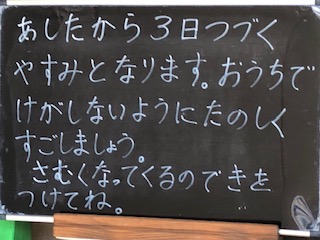 あしたから３日つづく
やすみとなります。おうちで
けがしないようにたのしく
すごしましょう。
さむくなってくるのできを
つけてね。